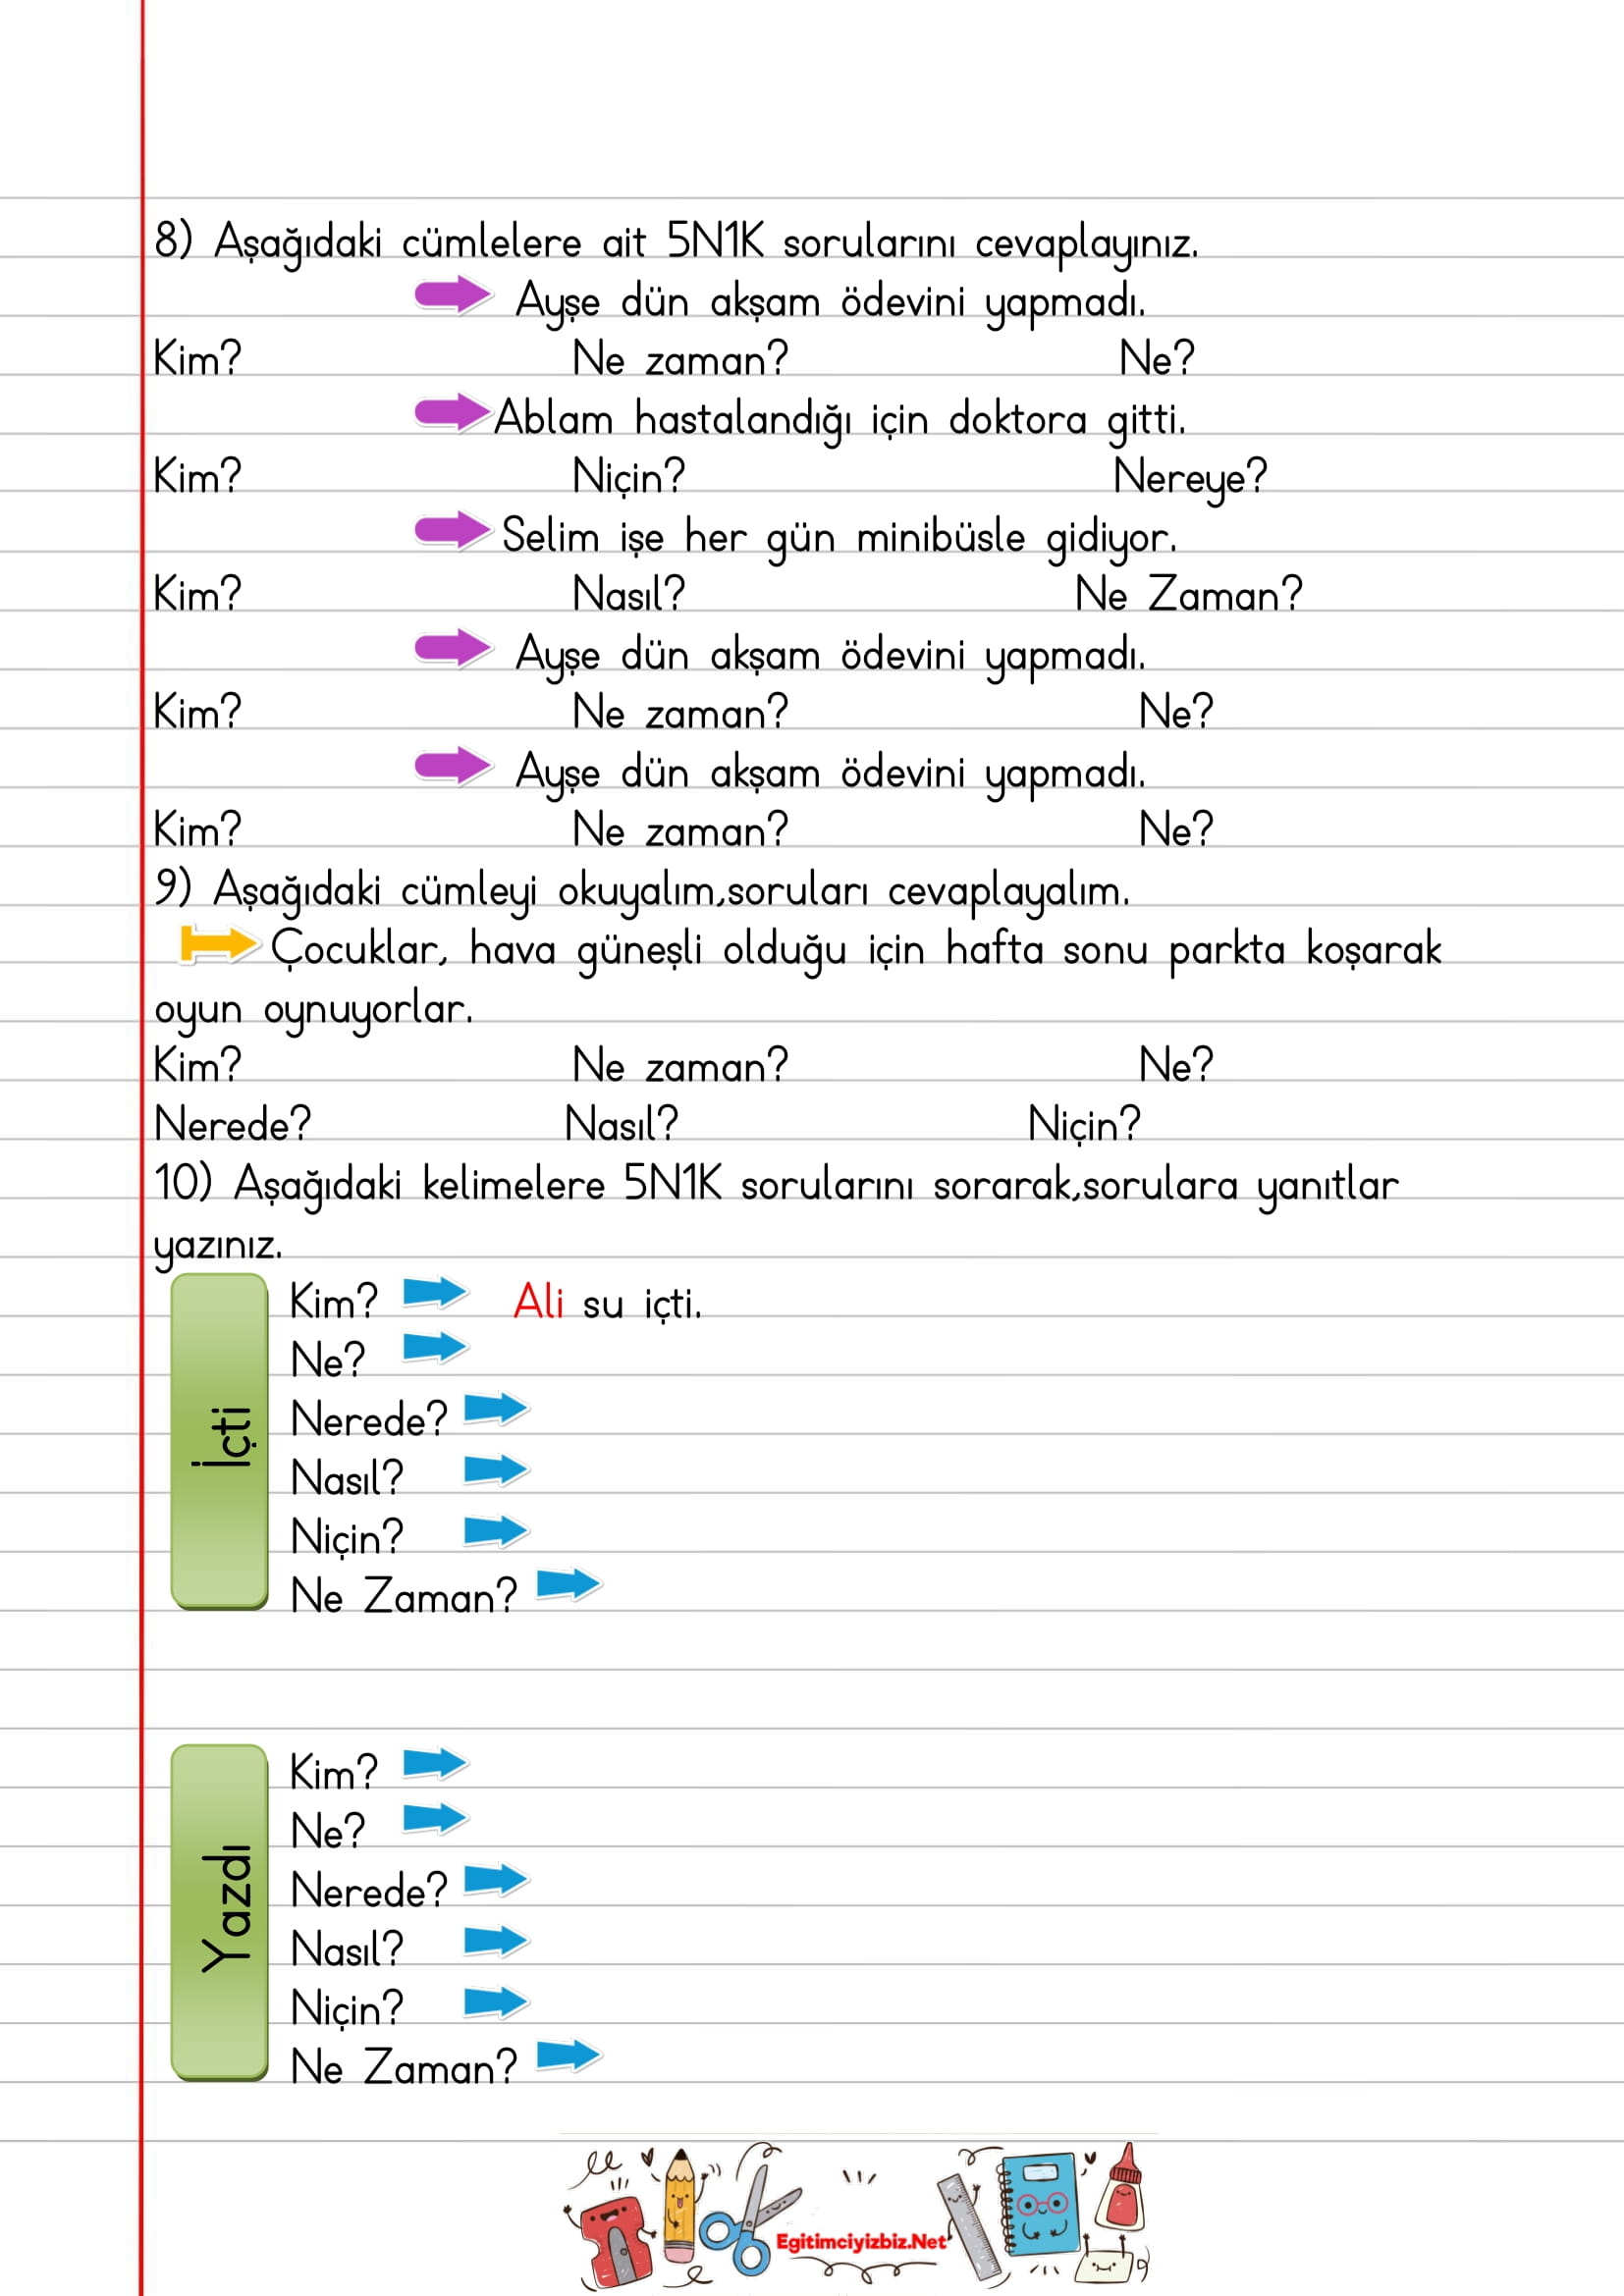 8) Aşağıdaki cümlelere ait 5N1K sorularını cevaplayınız.
Ayşe dün akşam ödevini yapmadı.
Kim? Ne zaman? Ne?
Ablam hastalandığı için doktora gitti.
Kim? Niçin? Nereye?
Selim işe her gün minibüsle gidiyor.
Kim? Nasıl? Ne Zaman?
Ayşe dün akşam ödevini yapmadı.
Kim? Ne zaman? Ne?
Ayşe dün akşam ödevini yapmadı.
Kim? Ne zaman? Ne?
9) Aşağıdaki cümleyi okuyalım,soruları cevaplayalım.
Çocuklar, hava güneşli olduğu için hafta sonu parkta koşarak
oyun oynuyorlar.
Kim? Ne zaman? Ne?
Nerede? Nasıl? Niçin?
10) Aşağıdaki kelimelere 5N1K sorularını sorarak,sorulara yanıtlar
yazınız.
İçti
Kim? Ali su içti.
Ne?
Nerede?
Nasıl?
Niçin?
Ne Zaman?
Yazdı
Kim?
Ne?
Nerede?
Nasıl?
Niçin?
Ne Zaman?
Egitimciyizbiz.Net